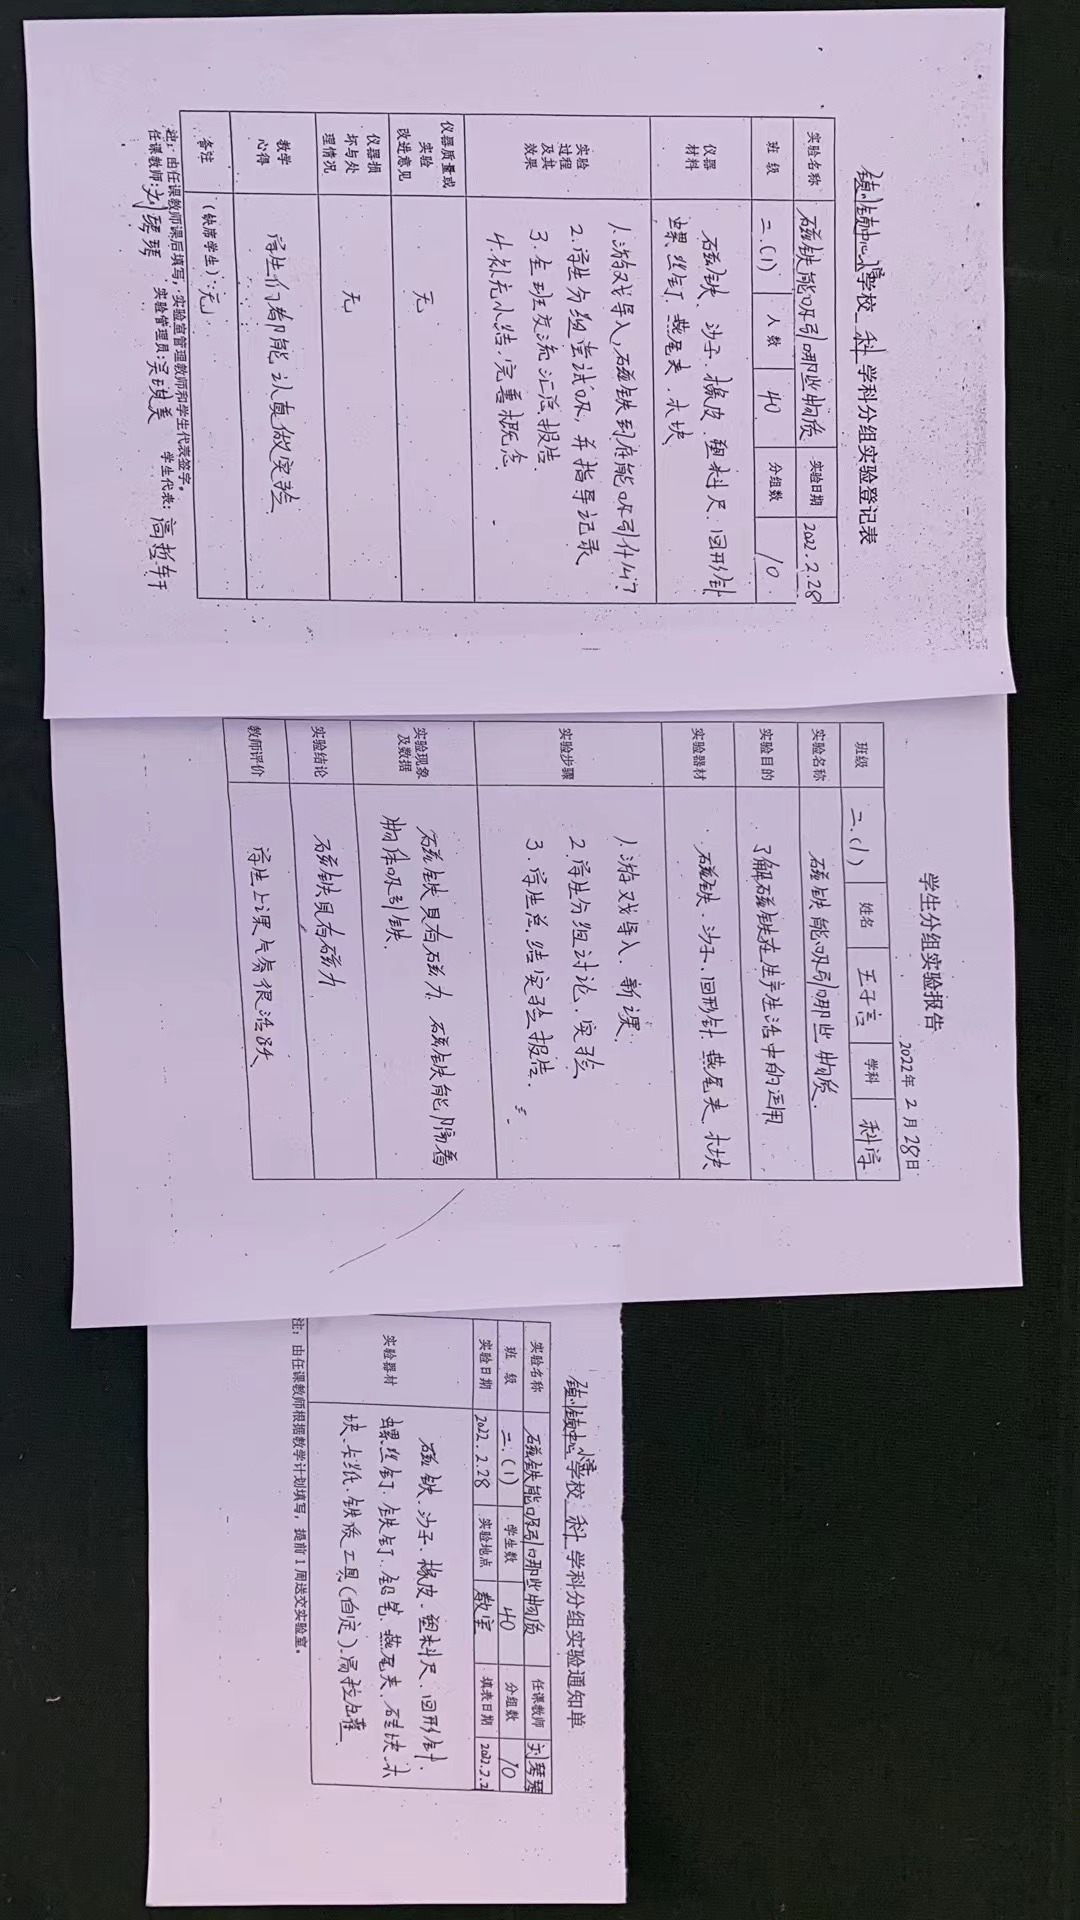 学校 科 学科分组实验登记表
实验名称 石磁铁能吸引哪些物质 实验日期 2022.2.28
班级 二.(1) 人数 40 分组数 10
仪器材料 石磁铁、沙子、橡皮、塑料尺、回形针
螺丝钉、燕尾夹、木块
实验过程及其效果 1.游戏导入,石磁铁到底能吸引什么?
2.学生分组尝试吸,并指导记录
3.全班交流汇总报告
4.补充小结,完善概念.
仪器质量或实验改进意见 无
仪器损坏与处理情况 无
教学心得 学生们都能认真做实验
备注 (缺席学生):无
注:由任课教师课后填写,实验室管理教师和学生代表签字。
任课教师:刘琴琴 实验管理员: 学生代表:
学生分组实验报告
2022年2月28日
班级 二.(1) 姓名 王子言 学科 科学
实验名称 石磁铁能吸引哪些物质.
实验目的 了解石磁铁在生产生活中的运用
实验器材 石磁铁、沙子、回形针、燕尾夹、木块
实验步骤 1.游戏导入、新课.
2.学生分组讨论、实验
3.学生总结实验报告.
实验现象及数据 石磁铁具有磁力、石磁铁能隔着
物体吸引铁.
实验结论 石磁铁具有磁力
教师评价 学生上课气氛很活跃
学校 科 学科分组实验通知单
实验名称 石磁铁能吸引哪些物质 任课教师 刘琴琴
班级 二.(1) 学生数 40 分组数 10
实验日期 2022.2.28 实验地点 教室 填表日期
实验器材 石磁铁、沙子、橡皮、塑料尺、回形针、
螺丝钉、铁钉、铅笔、燕尾夹、石块、木
块、卡纸、铁质工具(自定)
注:由任课教师根据教学计划填写,提前1周送交实验室。